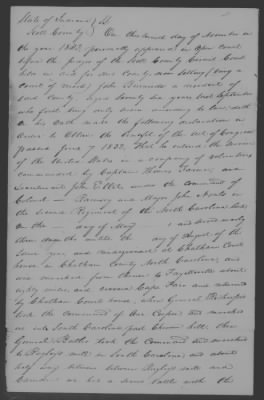 State of Indiana
Scott County On this second day of November in
the year 1832, personally appeared in open Court
before the Judges of the Scott County Circuit Court
now in and for said County, now sitting (being a
court of record) John a resident of
said County, aged seventy six years last September
who first being duly sworn according to law doth
on his oath make the following declaration in
order to obtain the benefit of the act of Congress
passed June 7 1832. That he entered the service
of the United States in a company of volunteers
commanded by Captain Thomas and
Lieutenant John Elliott under the command of
Colonel Ramsey and Major John in
the second Regiment of the North Carolina
on the day of May and served
three months until the day of August of the
same year, and rendezvoused at Chatham Court
house in Chatham County North Carolina, and
was marched from thence to Fayetteville about
eighty miles, and crossed Cape Fear and returned
by Chatham Court house, when General Rutherford
took the command of our Corps and marched
us into South Carolina past hill, then
General Gates took the command and marched
to Rugleys mill in South Carolina, and about
half way between Rugleys mill and
Camden we had a severe battle with the